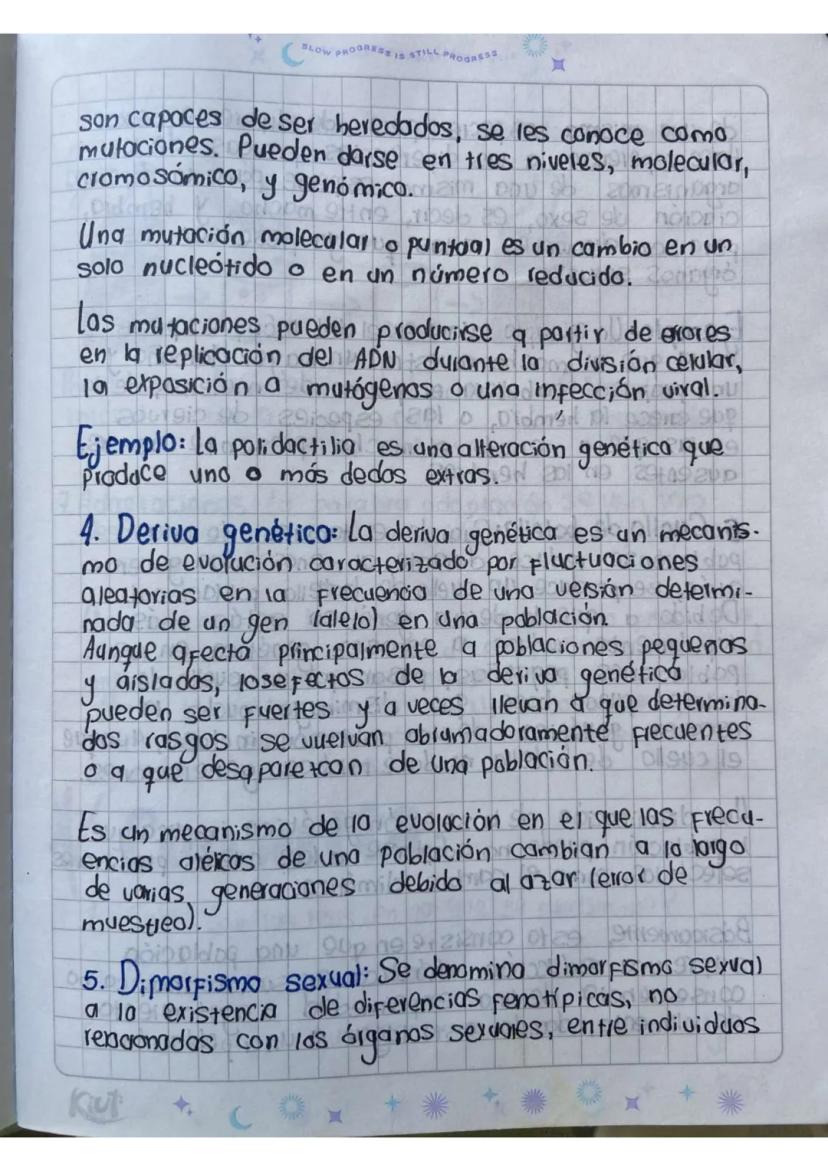 SLOW PROGRESS IS STILL PROGRESS
son capaces de ser heredados, se les conoce como
mutaciones. Pueden darse en tres niveles, molecular,
cromosómico, y genómico.
Una mutación molecular o puntual es un cambio en un
solo nucleótido o en un número reducido.
Las mutaciones pueden producirse a partir de errores
en la replicación del ADN durante la división celular,
la exposición a mutágenos o una infección viral.
Ejemplo: La polidactilia es una alteración genética que
produce uno o más dedos extras.
4. Deriva genética: La deriva genética es un mecanis-
mo de evolución caracterizado por fluctuaciones
aleatorias en la frecuencia de una versión determi-
nada de un gen (alelo) en una población.
Aunque afecta principalmente a poblaciones pequeñas
y aisladas, los efectos de la deriva genética
pueden ser fuertes y a veces llevan a que determina-
dos rasgos se vuelvan abrumadoramente frecuentes
o a que desaparezcan de una población.
Es un mecanismo de la evolución en el que las frecu-
encias alélicas de una población cambian a lo largo
de varias generaciones debido al azar (error de
muestreo).
5. Dimorfismo sexual: Se denomina dimorfismo sexual
a la existencia de diferencias fenotípicas, no
relacionadas con los órganos sexuales, entre individuos
Kiut